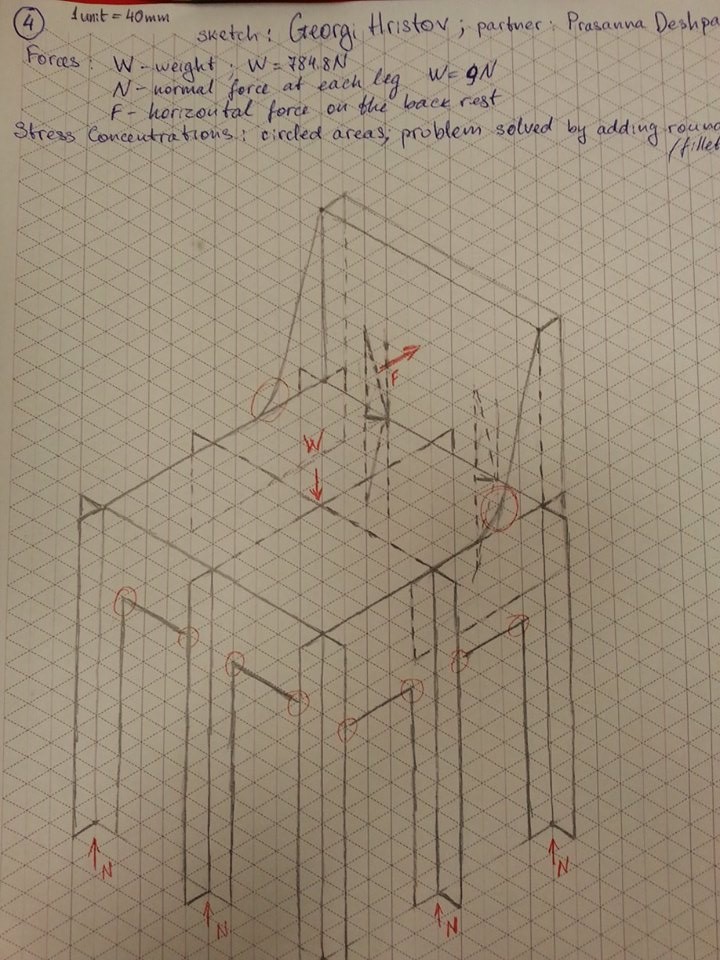 4 1 unit = 40mm
sketch: Georgi Hristov; partner: Prasanna Deshpa
Forces: W - weight; W = 784.8N
N - normal force at each leg W = 9N
F - horizontal force on the back rest
Stress Concentrations: circled areas; problem solved by adding round
/fillet
F
W
N
N
N
N